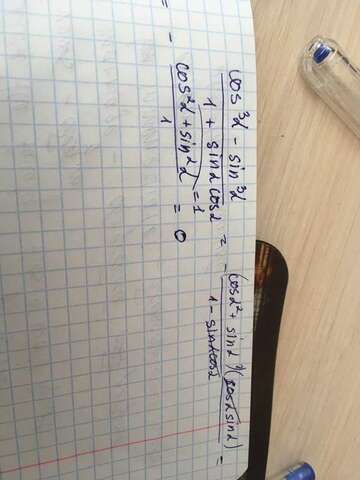 cos³α - sin³α / 1 + sinα cosα = - (cosα² + sinα²)(cosα sinα) / 1 - sinα cosα =
= - cos²α + sin²α = 1 / 1 = 0